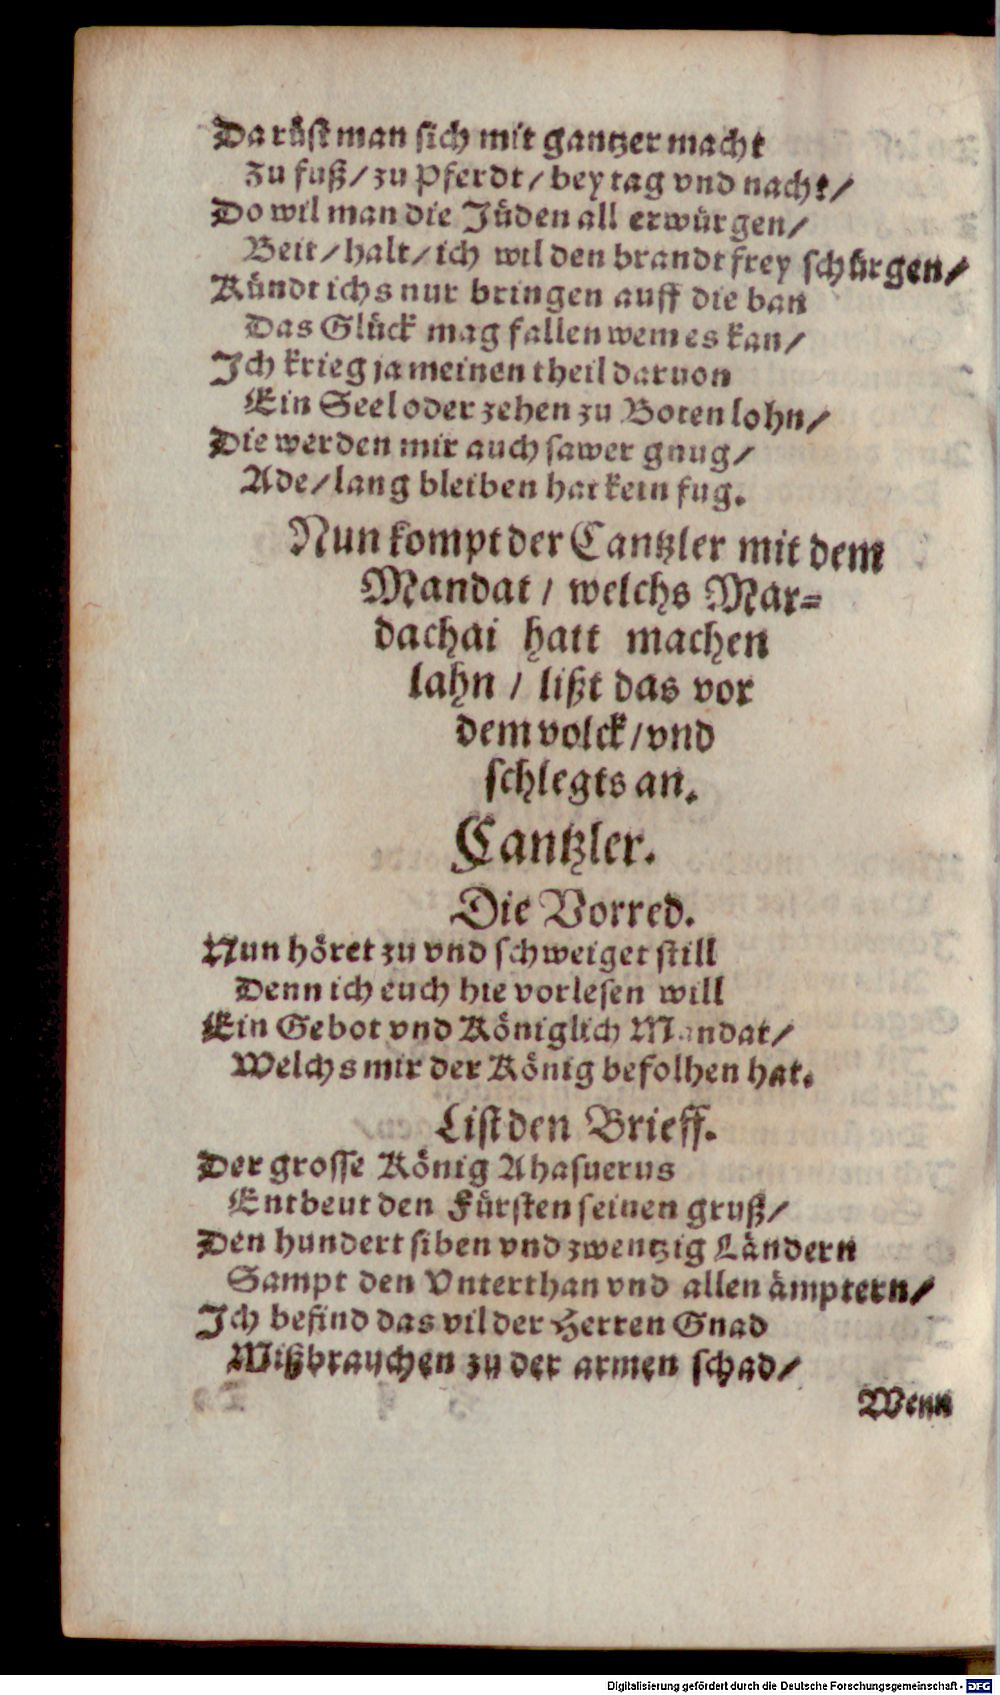 Da rüst man sich mit gantzer macht
Zu fuß / zu Pferdt / bey tag vnd nacht /
Do wil man die Jüden all erwürgen /
Beit / halt / ich wil den brandt frey schürgen /
Kündt ichs nur bringen auff die ban
Das Glück mag fallen wem es kan /
Ich krieg ja meinen theil daruon
Ein Seel oder zehen zu Boten lohn /
Die werden mir auch sawer gnug /
Ade / lang bleiben hat kein fug.
Nun kompt der Cantzler mit dem
Mandat / welchs Mar=
dachai hatt machen
lahn / lißt das vor
dem volck / vnd
schlegts an.
Cantzler.
Die Vorred.
Nun höret zu vnd schweiget still
Denn ich euch hie vorlesen will
Ein Gebot vnd Königlich Mandat /
Welchs mir der König befolhen hat.
List den Brieff.
Der grosse König Ahasuerus
Entbeut den Fürsten seinen gruß /
Den hundert siben vnd zwentzig Ländern
Sampt den Vnterthan vnd allen ämptern /
Ich befind das vil der Herren Gnad
Mißbrauchen zu der armen schad /
Wenn
Digitalisierung gefördert durch die Deutsche Forschungsgemeinschaft - DFG